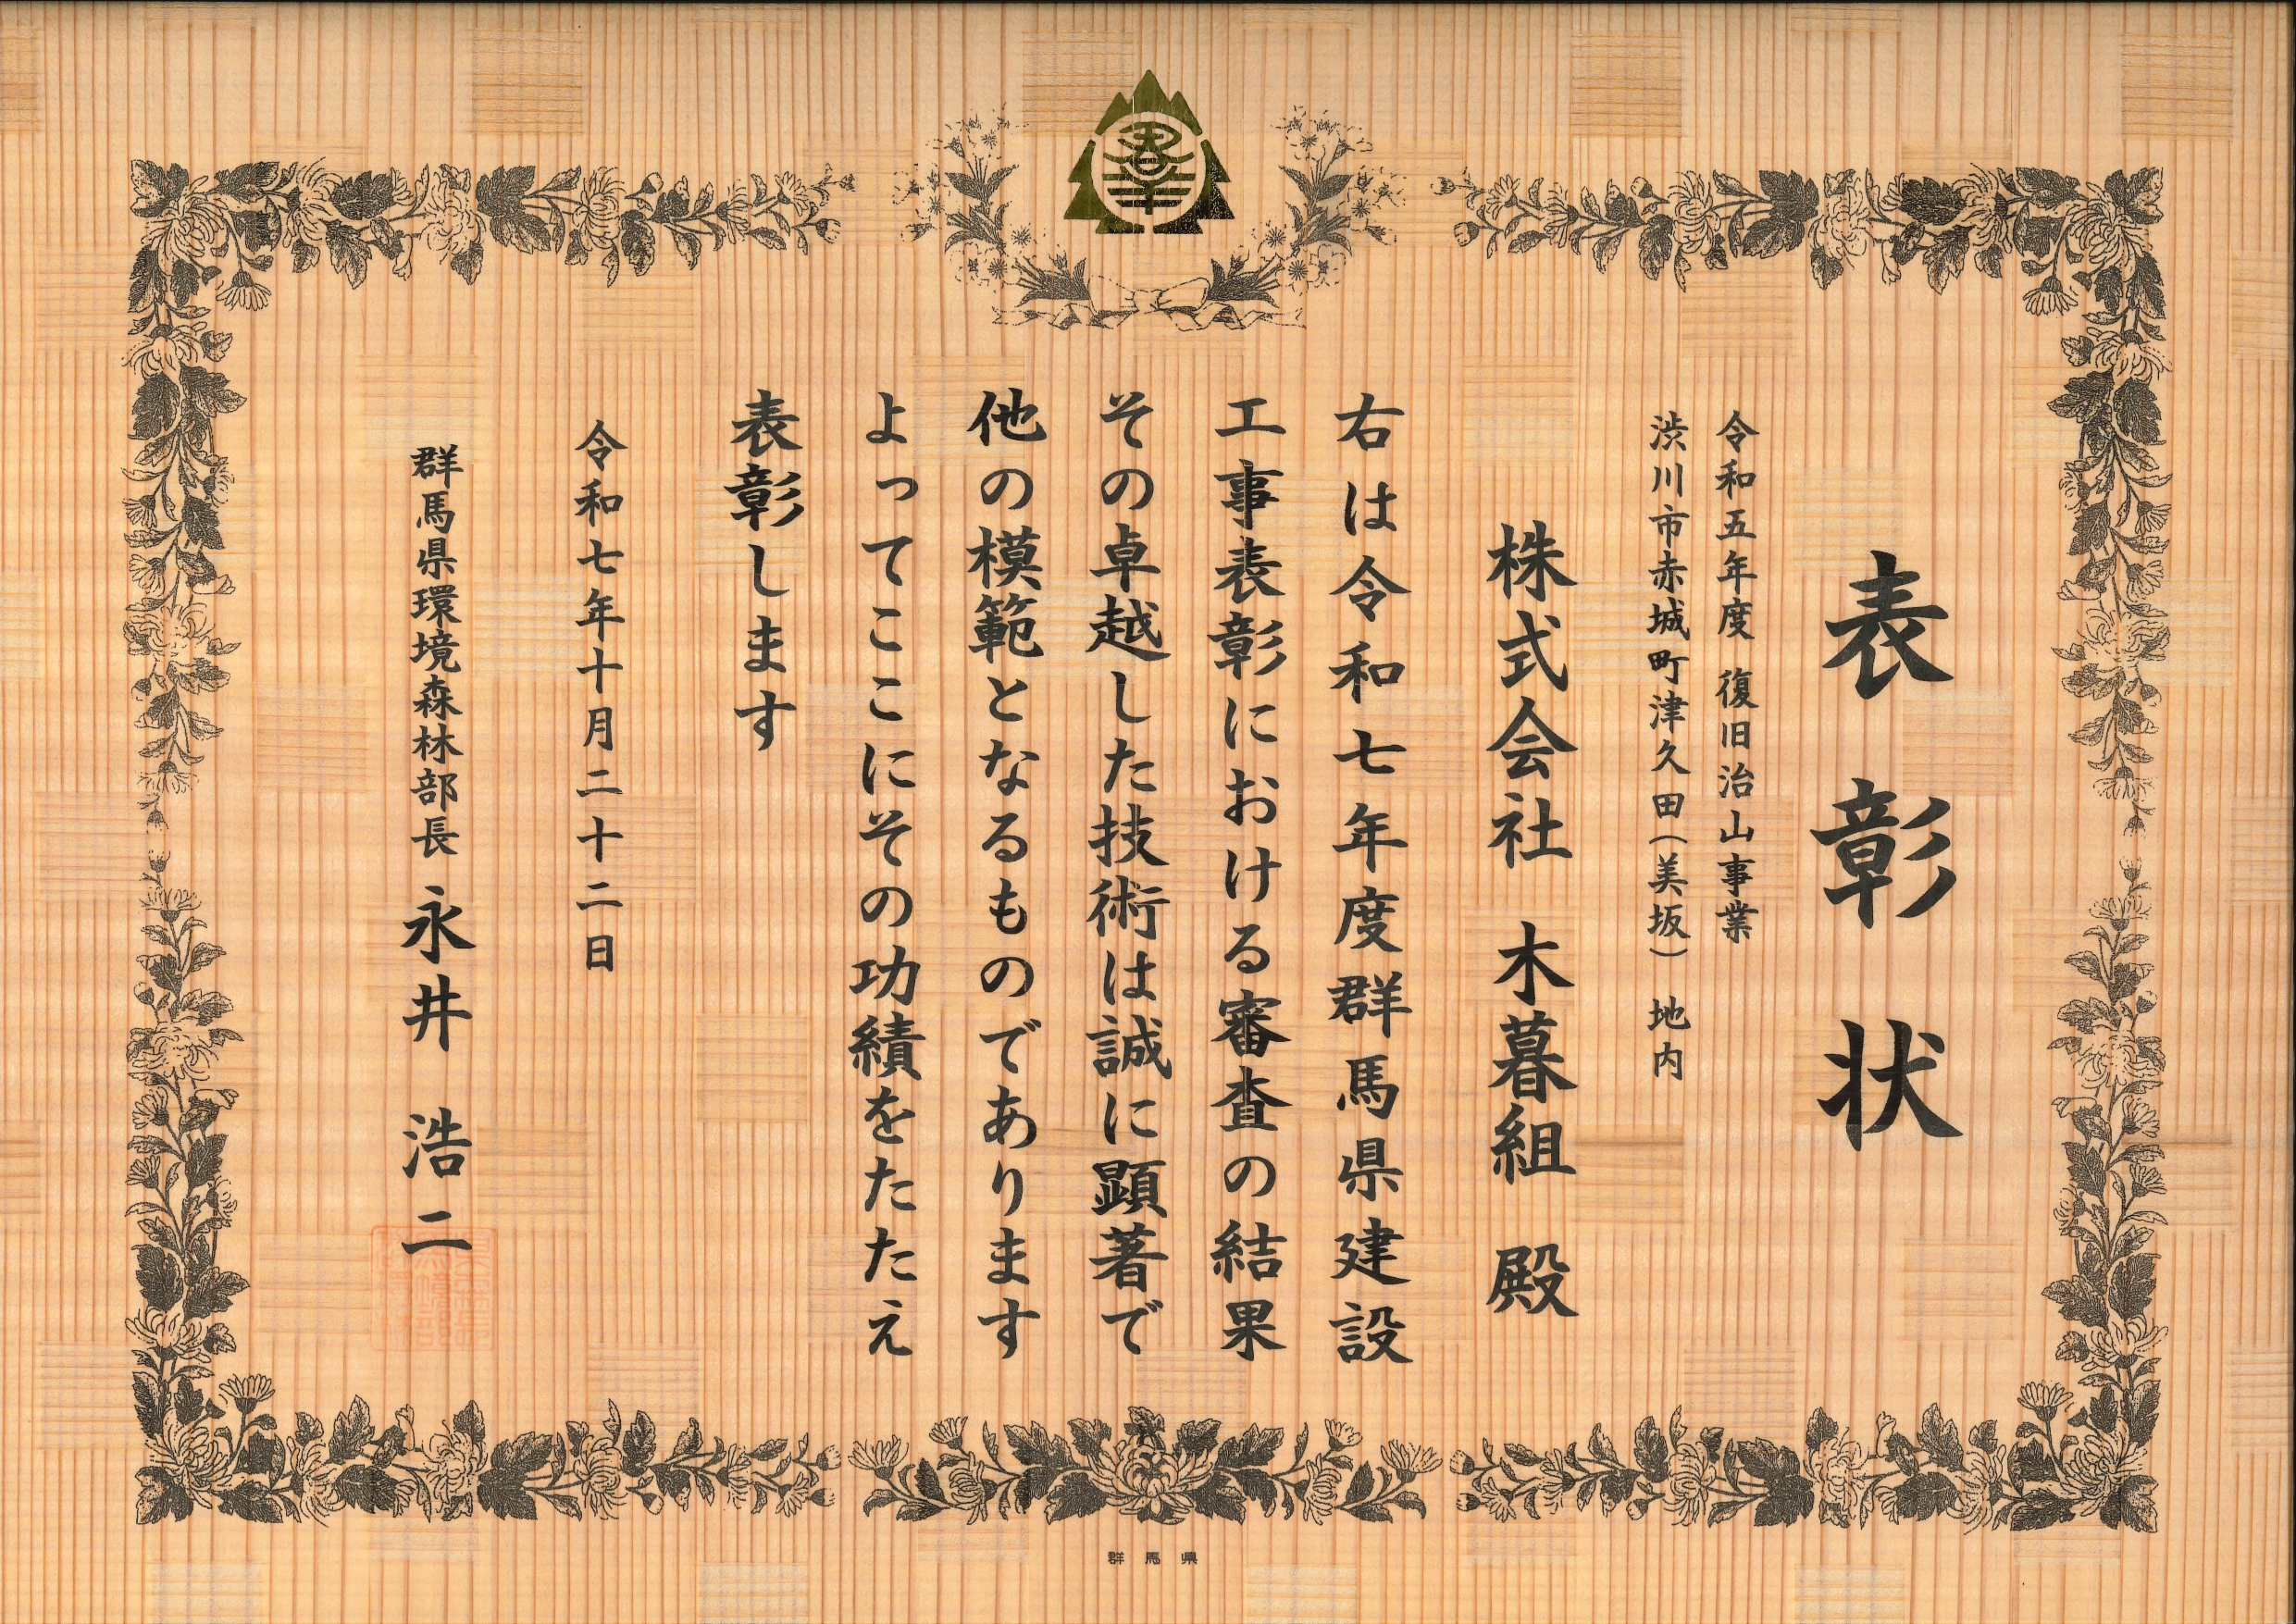 表彰状
令和五年度 復旧治山事業
渋川市赤城町津久田(美坂) 地内
株式会社 木暮組 殿
右は令和七年度群馬県建設
工事表彰における審査の結果
その卓越した技術は誠に顕著で
他の模範となるものであります
よってここにその功績をたたえ
表彰します
令和七年十月二十二日
群馬県環境森林部長 永井 浩二
群馬県